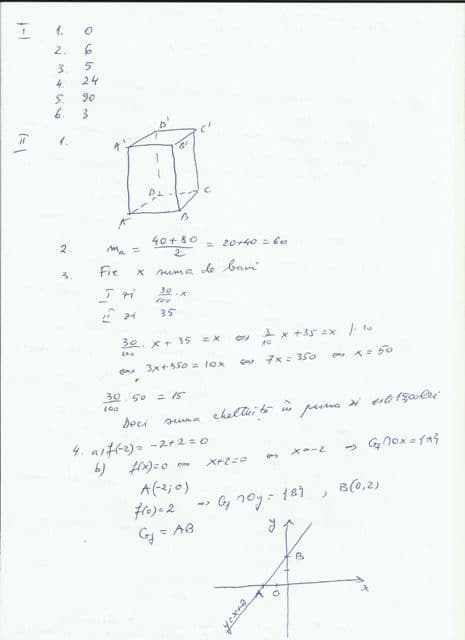 I 1. 0
2. 6
3. 5
4. 24
5. 90
6. 3
II 1.
D' C'
A' B'
D C
A B
2. m_a = \frac{40+80}{2} = 20+40 = 60
3. Fie x suma de bani
I zi \frac{30}{100} · x
II zi 35
\frac{30}{100} · x + 35 = x ⇔ \frac{3}{10} x + 35 = x /· 10
⇔ 3x+350 = 10x ⇔ 7x = 350 ⇔ x = 50
\frac{30}{100} · 50 = 15
Deci suma cheltuită în prima zi este 15 lei
4. a) f(-2) = -2+2 = 0
b) f(x)=0 ⇔ x+2=0 ⇔ x=-2 ⇒ Gf∩Ox={A}
A(-2;0)
f(0)=2 ⇒ Gf∩Oy = {B}, B(0,2)
Gf = AB
y
B
A O x
y=x+2